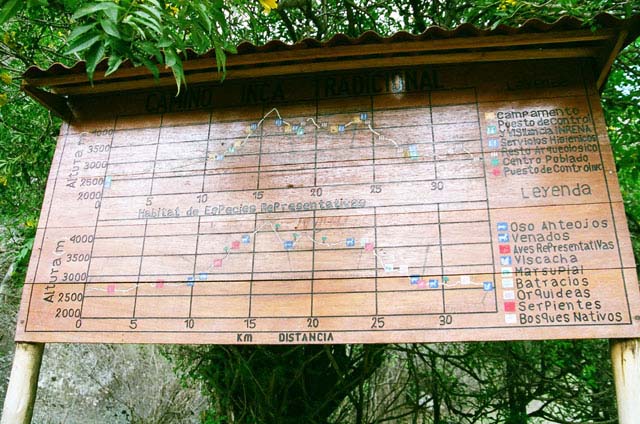 CAMINO INCA TRADICIONAL
Altura m
4000
3500
3000
2500
0 5 10 15 20 25 30
Campamento
Puesto de Control
Y Vigilancia INRENA
Servicios Higienicos
Centro Poblado
Puesto de Control INC
Habitat de Especies Representativas
Altura m
4000
3500
3000
2500
2000
0 5 10 15 20 25 30
KM DISTANCIA
Leyenda
Oso Anteojos
Venados
Aves Representativas
Viscacha
Marsupial
Batracios
Orquideas
Serpientes
Bosques Nativos